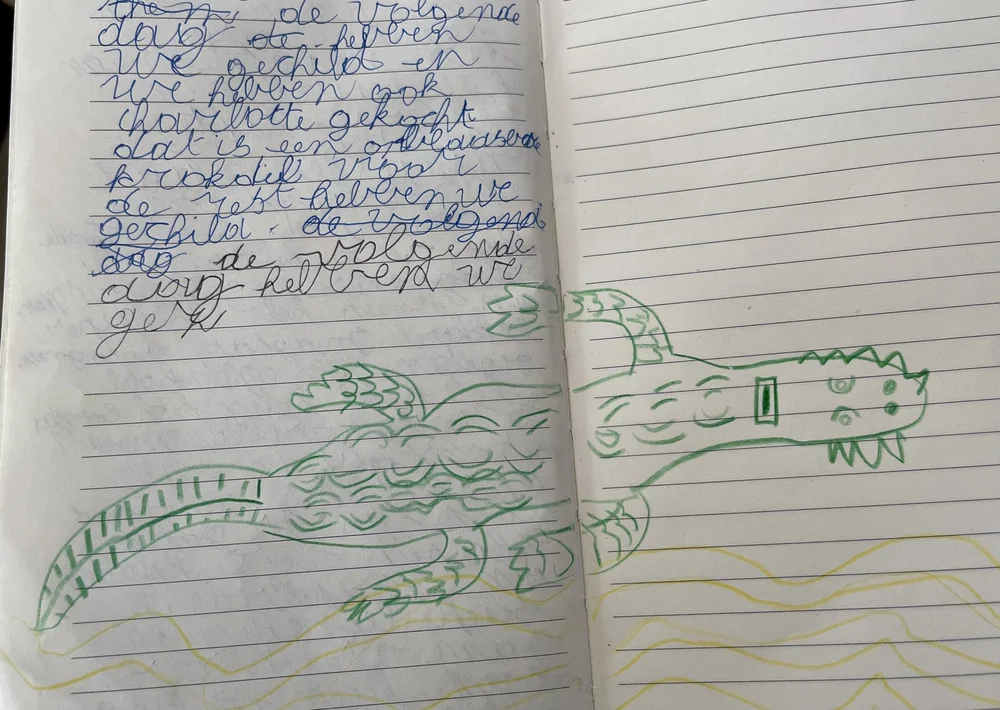 de volgende
dag de hebben
we gechild en
we hebben ook
charlotte gekocht
dat is een opblaasbare
krokodil voor
de rest hebben we
gechild. de volgend
dag de volgende
dag hebben we
gek